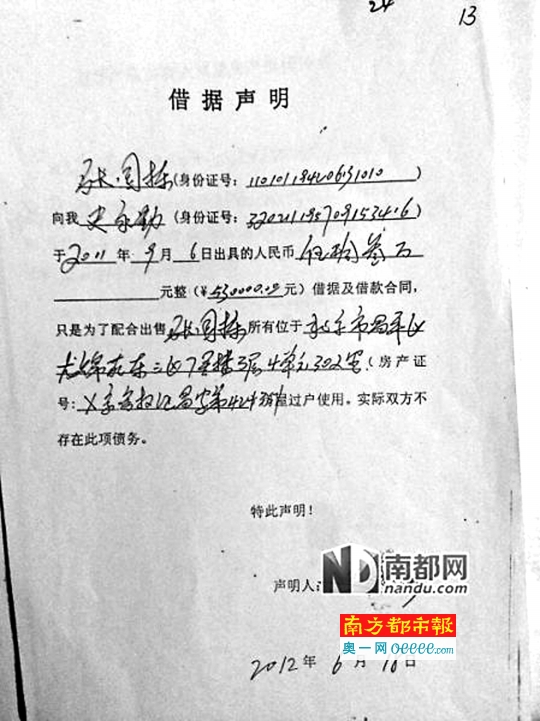 24
13
借据声明
张国栋(身份证号:)
向我 (身份证号:)
于2011年9月6日出具的人民币伍拾叁万
元整(¥530000.00元)借据及借款合同,
只是为了配合出售张国栋所有位于北京市昌平区
龙锦苑东三区7号楼3层4单元302室(房产证
号:X京房权证昌字第 号)房屋过户使用。实际双方不
存在此项债务。
特此声明!
声明人:
ND南都网
nandu.com
南方都市報
奥一网oeeee.com
2012年6月18日